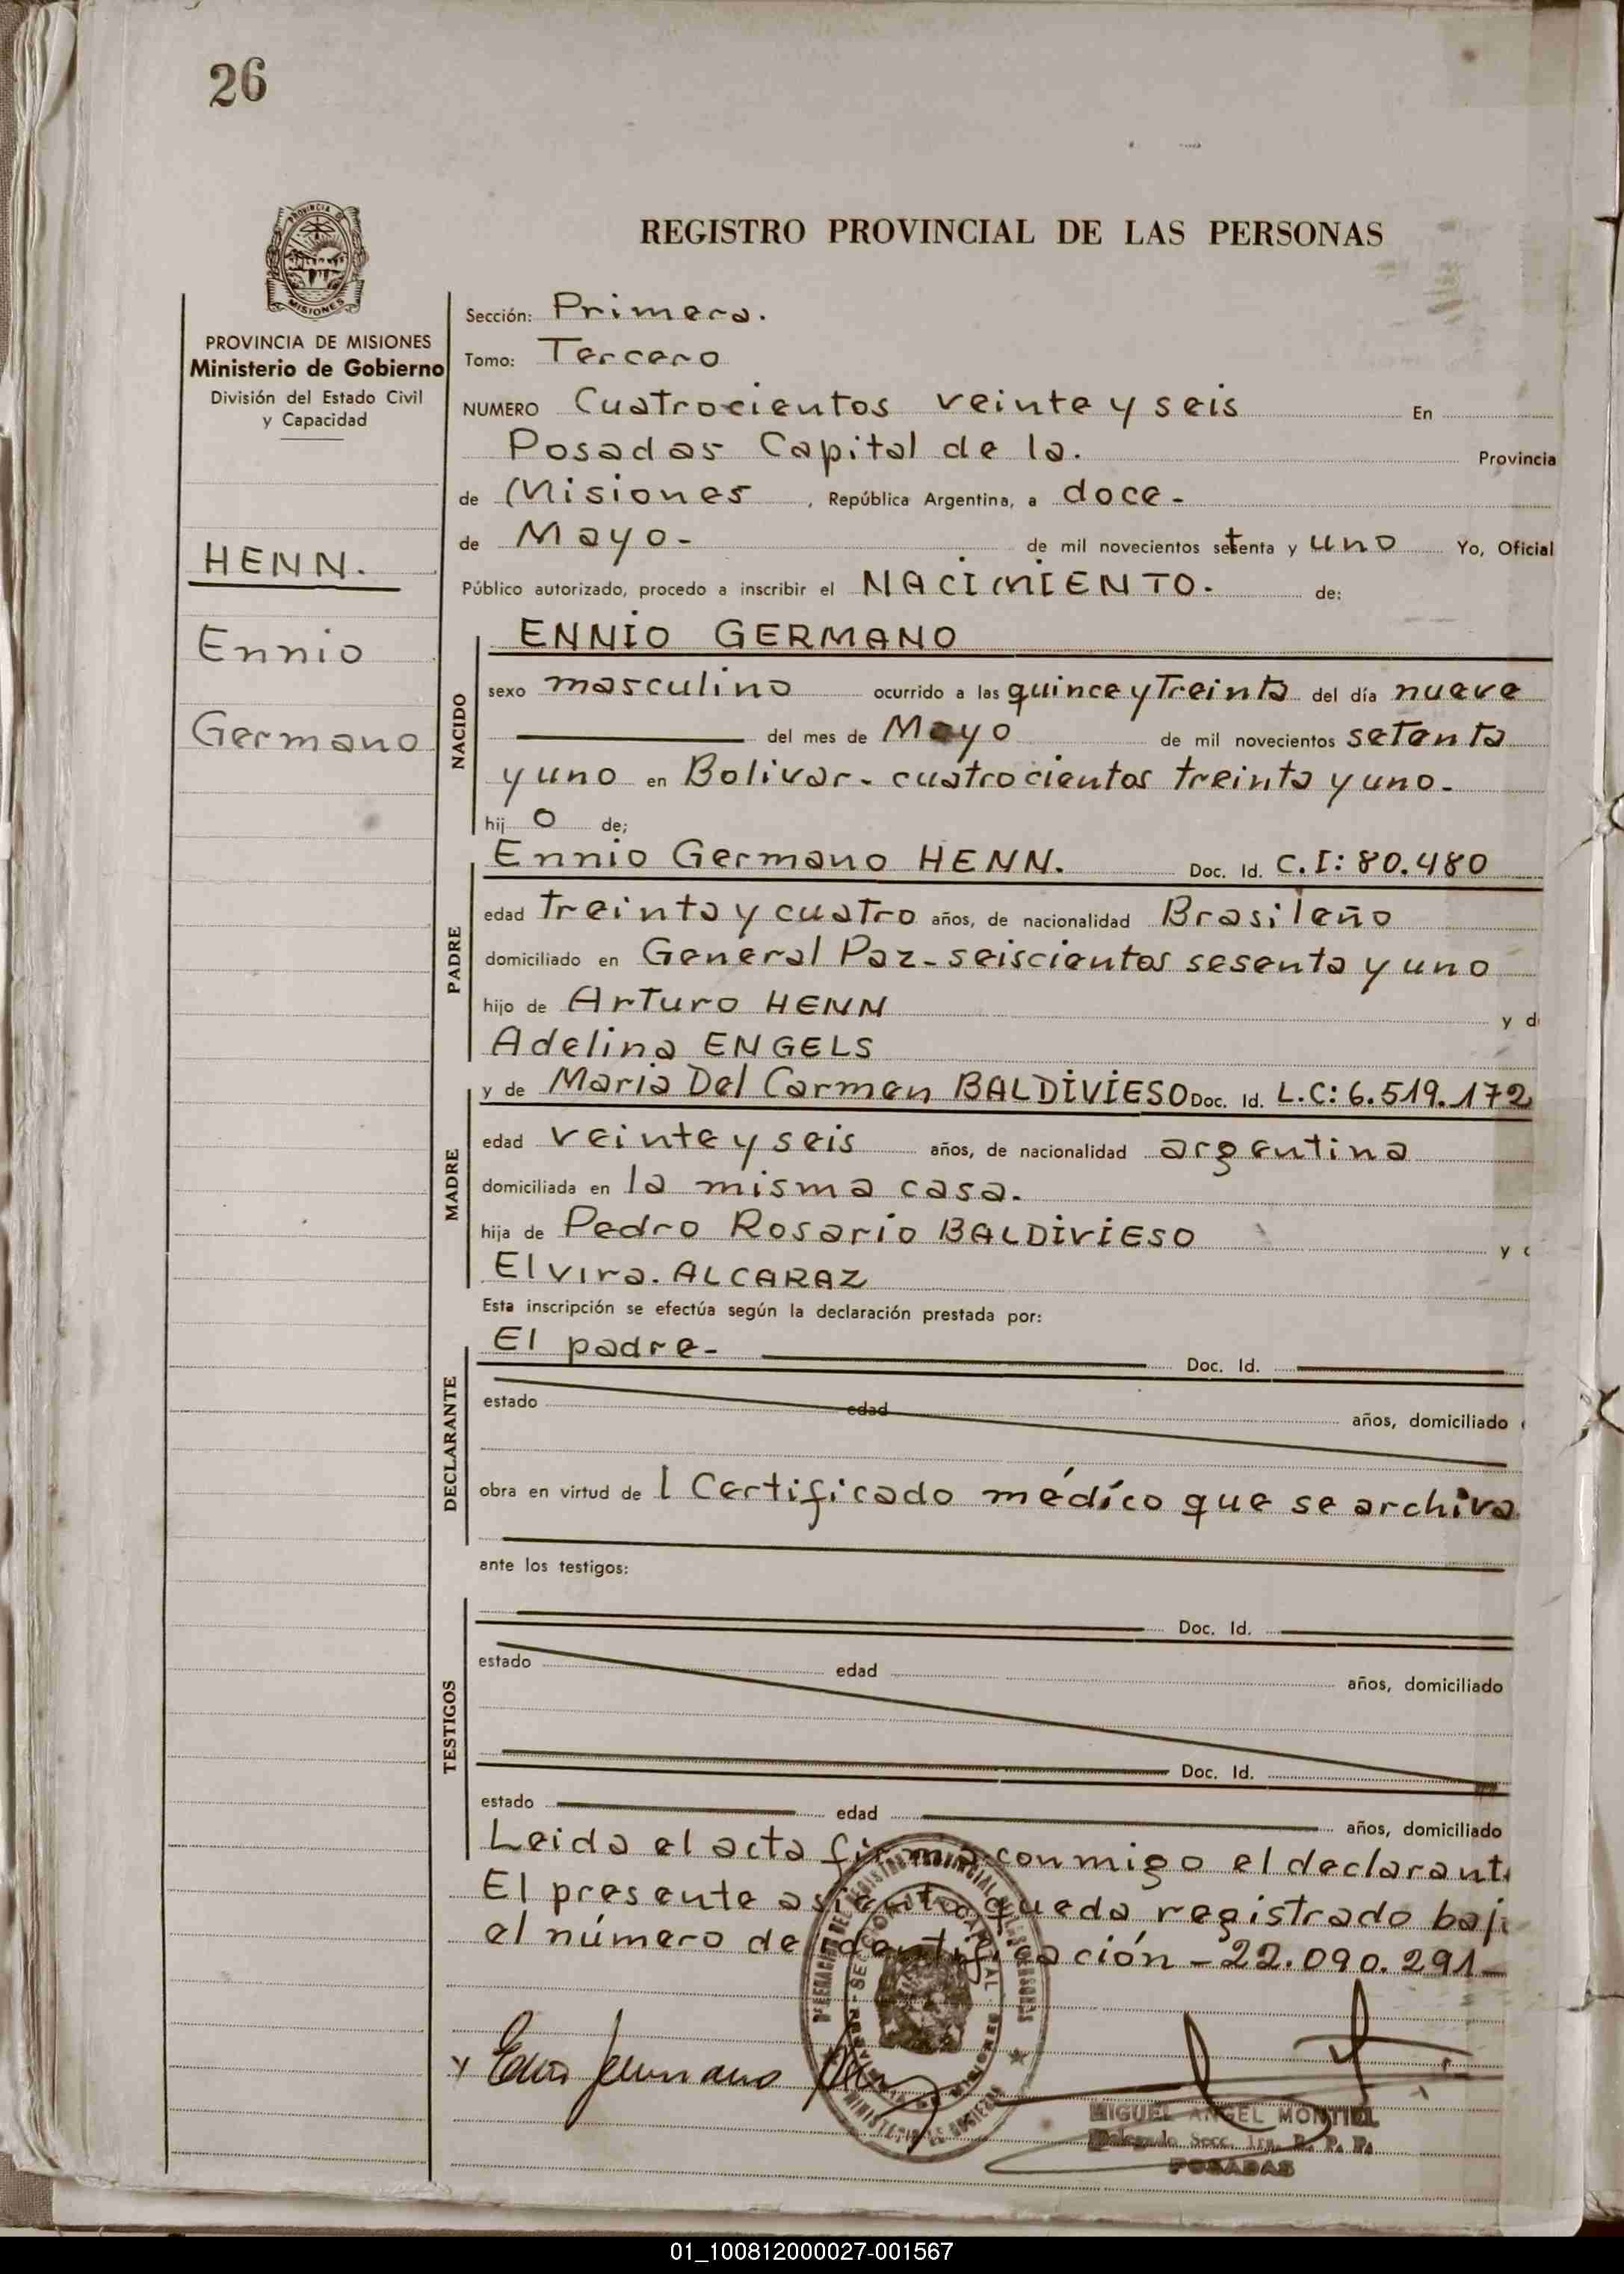 26
REGISTRO PROVINCIAL DE LAS PERSONAS
PROVINCIA DE
MISIONES
PROVINCIA DE MISIONES
Ministerio de Gobierno
División del Estado Civil
y Capacidad
HENN.
Ennio
Germano
Sección: Primera.
Tomo: Tercero
NUMERO Cuatrocientos veinte y seis En
Posadas Capital de la. Provincia
de Misiones, República Argentina, a doce-
de Mayo- de mil novecientos setenta y uno Yo, Oficial
Público autorizado, procedo a inscribir el NACIMIENTO. de:
NACIDO
ENNIO GERMANO
sexo masculino ocurrido a las quince y Treinta del día nueve
del mes de Mayo de mil novecientos setenta
y uno en Bolivar- cuatrocientos treinta y uno-
hij o de;
PADRE
Ennio Germano HENN. Doc. Id. C.I: 80.480
edad treinta y cuatro años, de nacionalidad Brasileño
domiciliado en General Paz- seiscientos sesenta y uno
hijo de Arturo HENN y d
Adelina ENGELS
MADRE
y de Maria Del Carmen BALDIVIESO Doc. Id. L.C: 6.519.172
edad veinte y seis años, de nacionalidad argentina
domiciliada en la misma casa.
hija de Pedro Rosario BALDIVIESO y
Elvira. ALCARAZ
Esta inscripción se efectúa según la declaración prestada por:
DECLARANTE
El padre- Doc. Id.
estado edad años, domiciliado
obra en virtud de l Certificado médico que se archiva
ante los testigos:
TESTIGOS
Doc. Id.
estado edad años, domiciliado
Doc. Id.
estado edad años, domiciliado
Leida el acta firma conmigo el declarant
El presente asiento queda registrado baj
el número de identificación -22.090.291-
MIGUEL ANGEL MONTIEL
Delegado Secc. 1ra. R. P. P.
POSADAS
01_100812000027-001567